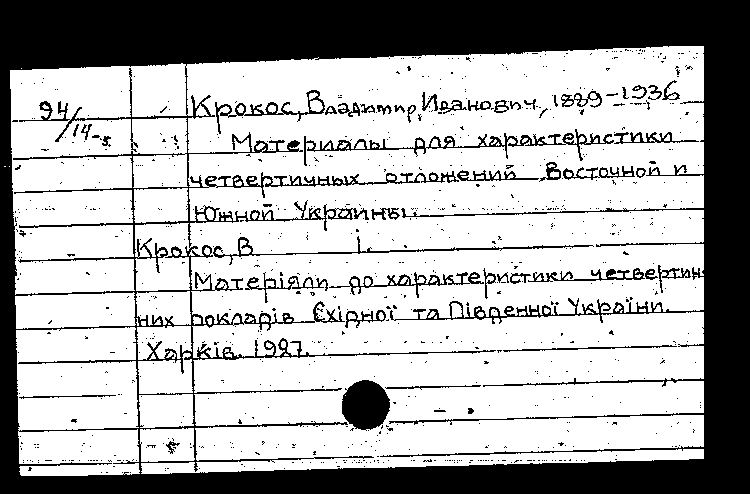 94/14-5.
Крокос, Владимир Иванович, 1889-1936
Материалы для характеристики
четвертичных отложений Восточной и
Южной Украины.
Крокос, В І.
Матеріяли до характеристики четвертин-
них покладів Східної та Південної України.
Харків. 1927.